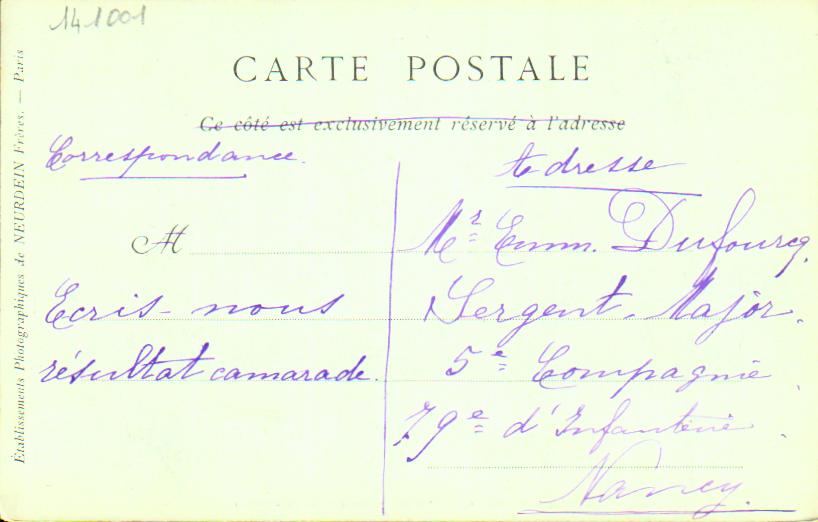 141001
CARTE POSTALE
Ce côté est exclusivement réservé à l'adresse
Correspondance.
Adresse
M
Ecris-nous
résultat camarade.
Mr Emm. Dufourcq.
Sergent-Major.
5e Compagnie
79e d'Infanterie
Nancy.
Établissements Photographiques de NEURDEIN Frères. — Paris